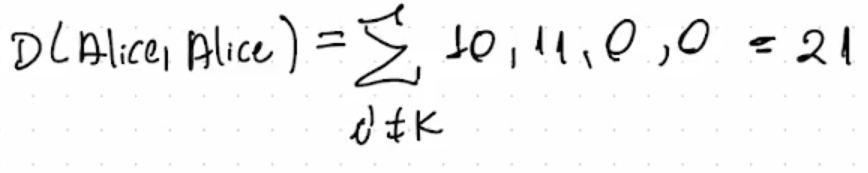 D(Alice, Alice) = ∑ 10, 11, 0, 0 = 21
i ≠ K